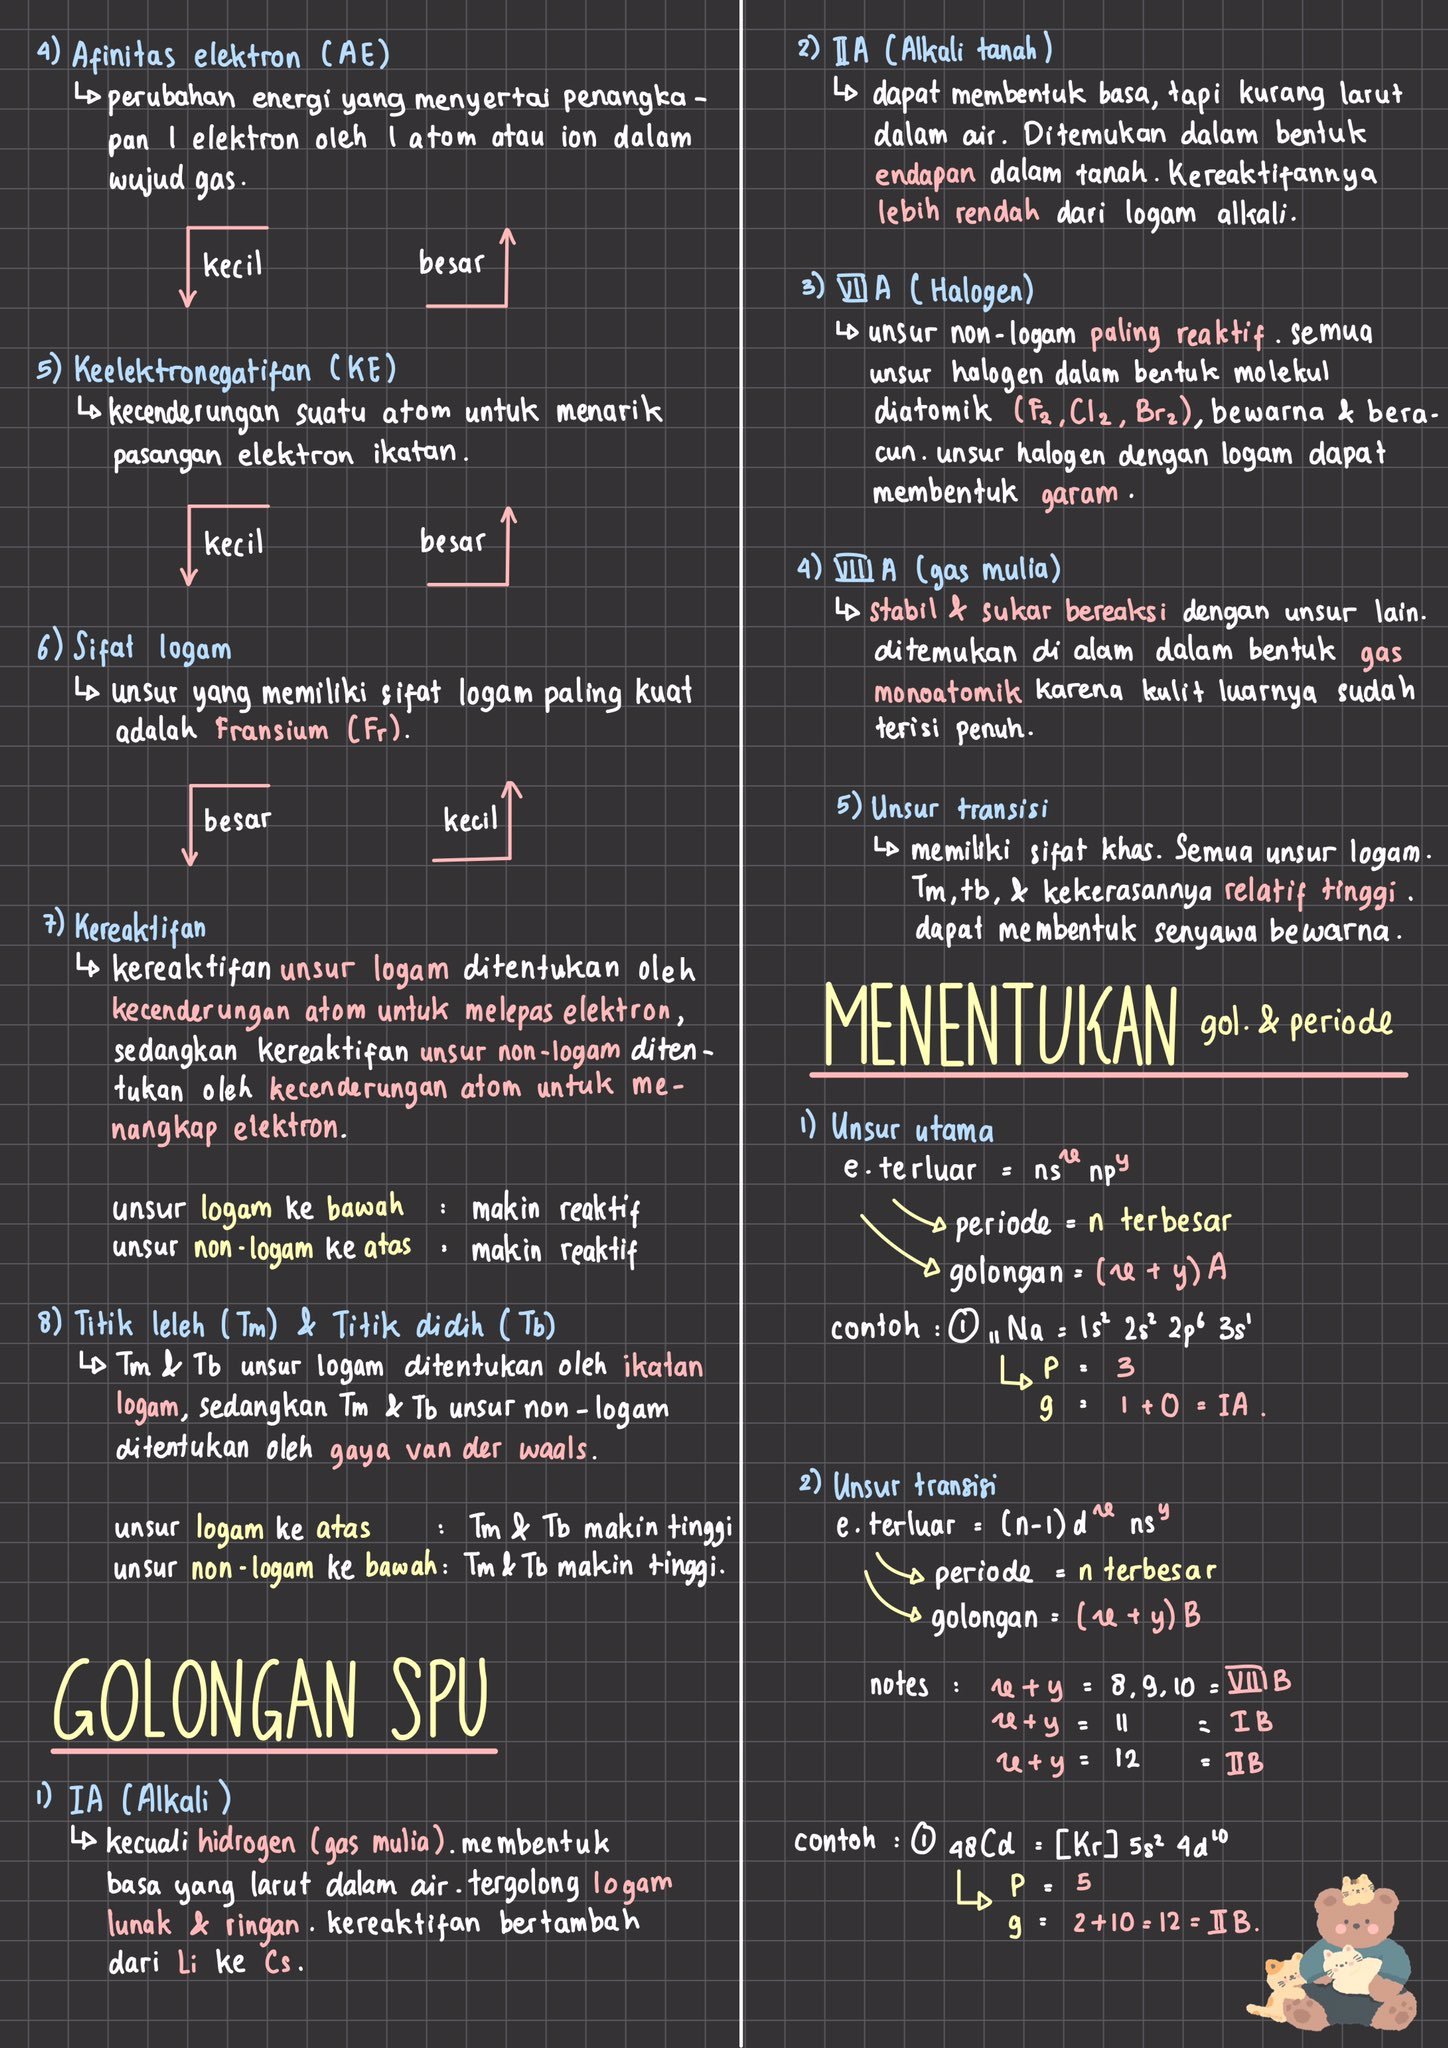 4) Afinitas elektron (AE)
↳ perubahan energi yang menyertai penangka-
pan 1 elektron oleh 1 atom atau ion dalam
wujud gas.
kecil besar
5) Keelektronegatifan (KE)
↳ kecenderungan suatu atom untuk menarik
pasangan elektron ikatan.
kecil besar
6) Sifat logam
↳ unsur yang memiliki sifat logam paling kuat
adalah Fransium (Fr).
besar kecil
7) Kereaktifan
↳ kereaktifan unsur logam ditentukan oleh
kecenderungan atom untuk melepas elektron,
sedangkan kereaktifan unsur non-logam diten-
tukan oleh kecenderungan atom untuk me-
nangkap elektron.
unsur logam ke bawah : makin reaktif
unsur non-logam ke atas : makin reaktif
8) Titik leleh (Tm) & Titik didih (Tb)
↳ Tm & Tb unsur logam ditentukan oleh ikatan
logam, sedangkan Tm & Tb unsur non-logam
ditentukan oleh gaya van der waals.
unsur logam ke atas : Tm & Tb makin tinggi
unsur non-logam ke bawah : Tm & Tb makin tinggi.
GOLONGAN SPU
1) IA (Alkali)
↳ kecuali hidrogen (gas mulia). membentuk
basa yang larut dalam air. tergolong logam
lunak & ringan. kereaktifan bertambah
dari Li ke Cs.
2) IIA (Alkali tanah)
↳ dapat membentuk basa, tapi kurang larut
dalam air. Ditemukan dalam bentuk
endapan dalam tanah. Kereaktifannya
lebih rendah dari logam alkali.
3) VIIA (Halogen)
↳ unsur non-logam paling reaktif. semua
unsur halogen dalam bentuk molekul
diatomik (F₂, Cl₂, Br₂), bewarna & bera-
cun. unsur halogen dengan logam dapat
membentuk garam.
4) VIIIA (gas mulia)
↳ stabil & sukar bereaksi dengan unsur lain.
ditemukan di alam dalam bentuk gas
monoatomik karena kulit luarnya sudah
terisi penuh.
5) Unsur transisi
↳ memiliki sifat khas. Semua unsur logam.
Tm, tb, & kekerasannya relatif tinggi.
dapat membentuk senyawa bewarna.
MENENTUKAN gol. & periode
1) Unsur utama
e. terluar = nsˣ npʸ
periode = n terbesar
golongan = (x + y) A
contoh : ① ₁₁Na = 1s² 2s² 2p⁶ 3s¹
↳ P = 3
g = 1 + 0 = IA.
2) Unsur transisi
e. terluar = (n-1) dˣ nsʸ
periode = n terbesar
golongan = (x + y) B
notes : x + y = 8, 9, 10 = VIIIB
x + y = 11 = IB
x + y = 12 = IIB
contoh : ① 48Cd = [Kr] 5s² 4d¹⁰
↳ P = 5
g = 2 + 10 = 12 = IIB.